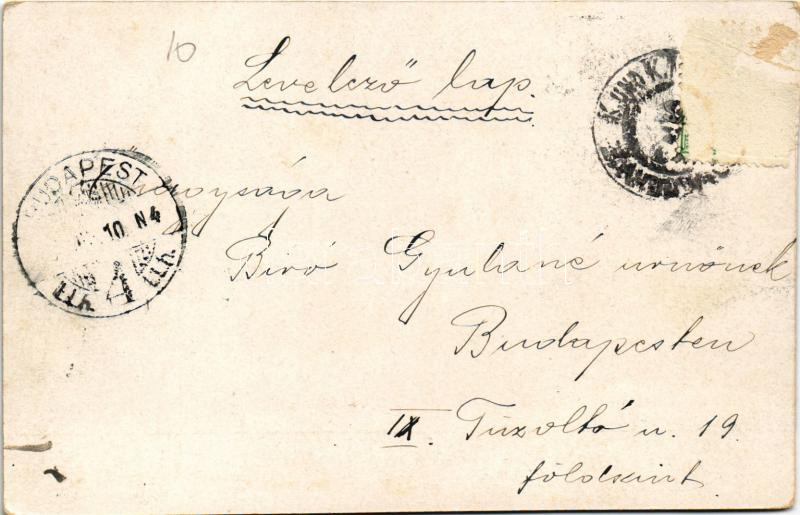 10
Levelező lap.
BUDAPEST
10 N4
4
VII
Nagysága
Biró Gyuláné urnőnek
Budapesten
IX. Tűzoltó u. 19.
földszint